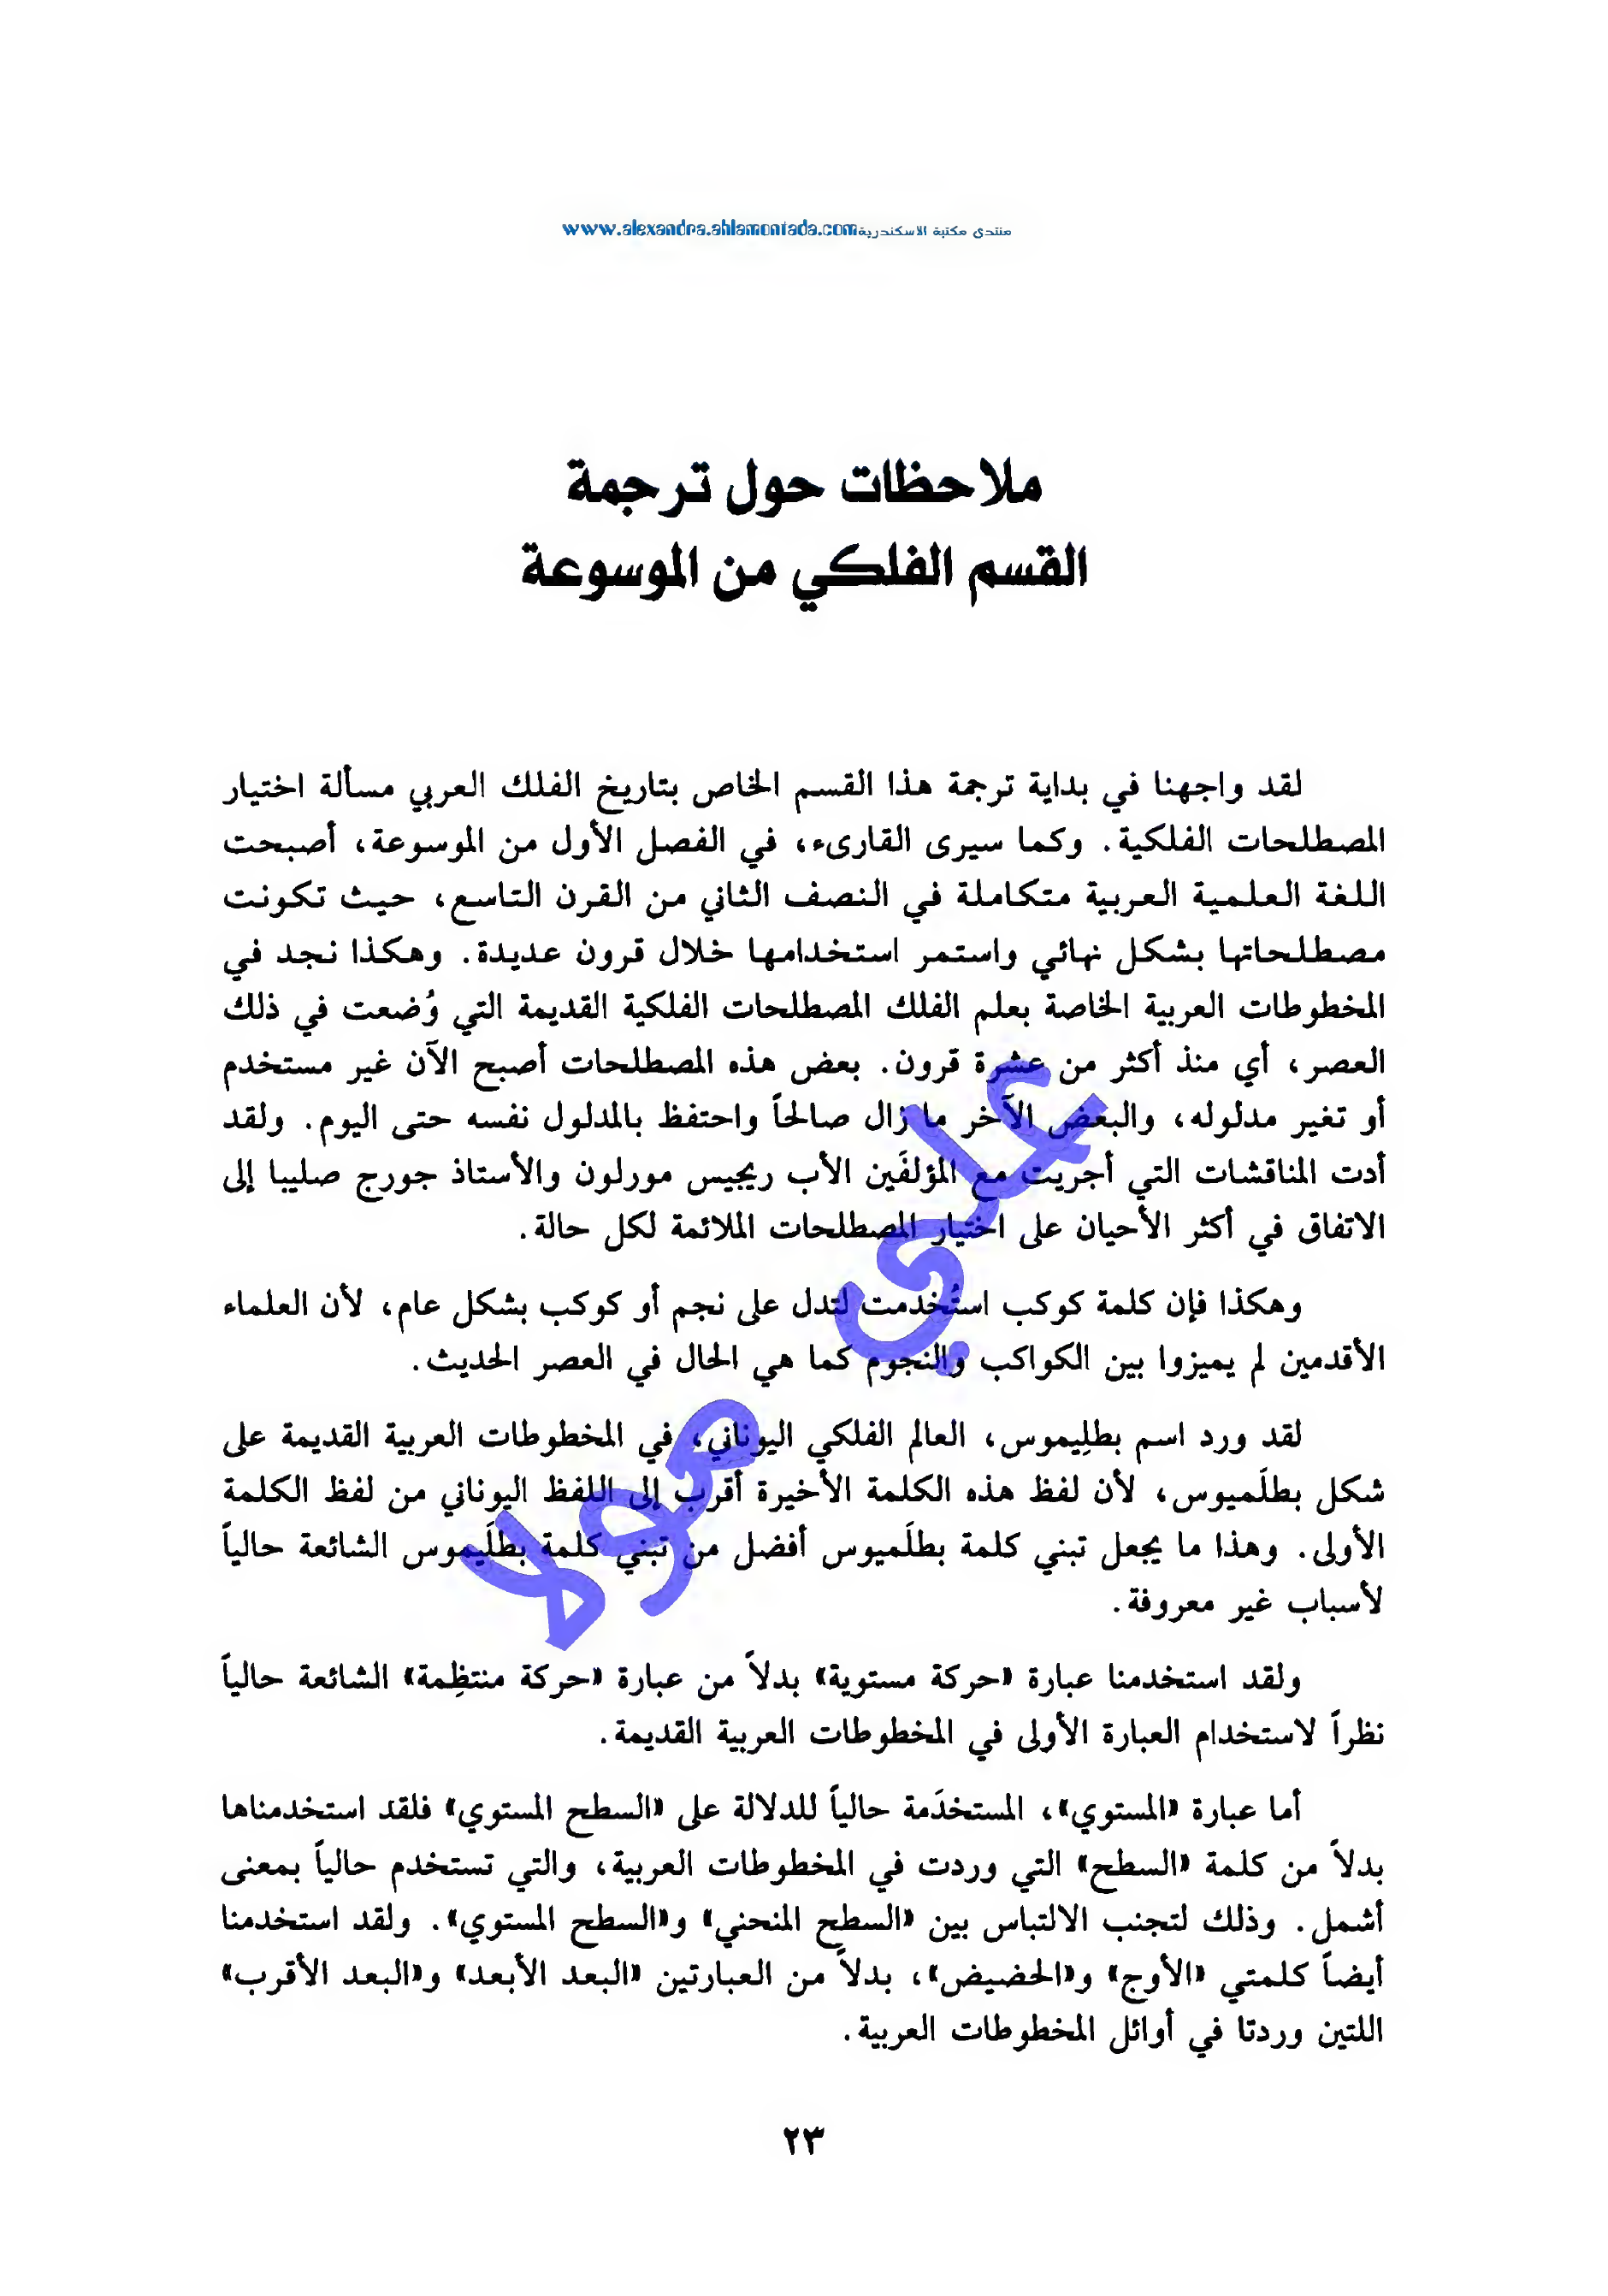 منتدى مكتبة الاسكندرية www.alexandra.ahlamontada.com
ملاحظات حول ترجمة
القسم الفلكي من الموسوعة
لقد واجهنا في بداية ترجمة هذا القسم الخاص بتاريخ الفلك العربي مسألة اختيار
المصطلحات الفلكية. وكما سيرى القارىء، في الفصل الأول من الموسوعة، أصبحت
اللغة العلمية العربية متكاملة في النصف الثاني من القرن التاسع، حيث تكونت
مصطلحاتها بشكل نهائي واستمر استخدامها خلال قرون عديدة. وهكذا نجد في
المخطوطات العربية الخاصة بعلم الفلك المصطلحات الفلكية القديمة التي وُضعت في ذلك
العصر، أي منذ أكثر من عشرة قرون. بعض هذه المصطلحات أصبح الآن غير مستخدم
أو تغير مدلوله، والبعض الآخر ما زال صالحاً واحتفظ بالمدلول نفسه حتى اليوم. ولقد
أدت المناقشات التي أجريت مع المؤلفَين الأب ريجيس مورلون والأستاذ جورج صليبا إلى
الاتفاق في أكثر الأحيان على اختيار المصطلحات الملائمة لكل حالة.
وهكذا فإن كلمة كوكب استُخدمت لتدل على نجم أو كوكب بشكل عام، لأن العلماء
الأقدمين لم يميزوا بين الكواكب والنجوم كما هي الحال في العصر الحديث.
لقد ورد اسم بطلِيموس، العالم الفلكي اليوناني، في المخطوطات العربية القديمة على
شكل بطلَميوس، لأن لفظ هذه الكلمة الأخيرة أقرب إلى اللفظ اليوناني من لفظ الكلمة
الأولى. وهذا ما يجعل تبني كلمة بطلَميوس أفضل من تبني كلمة بطلَيموس الشائعة حالياً
لأسباب غير معروفة.
ولقد استخدمنا عبارة «حركة مستوية» بدلاً من عبارة «حركة منتظِمة» الشائعة حالياً
نظراً لاستخدام العبارة الأولى في المخطوطات العربية القديمة.
أما عبارة «المستوي»، المستخدَمة حالياً للدلالة على «السطح المستوي» فلقد استخدمناها
بدلاً من كلمة «السطح» التي وردت في المخطوطات العربية، والتي تستخدم حالياً بمعنى
أشمل. وذلك لتجنب الالتباس بين «السطح المنحني» و«السطح المستوي». ولقد استخدمنا
أيضاً كلمتي «الأوج» و«الحضيض»، بدلاً من العبارتين «البعد الأبعد» و«البعد الأقرب»
اللتين وردتا في أوائل المخطوطات العربية.
علي مولا
٢٣